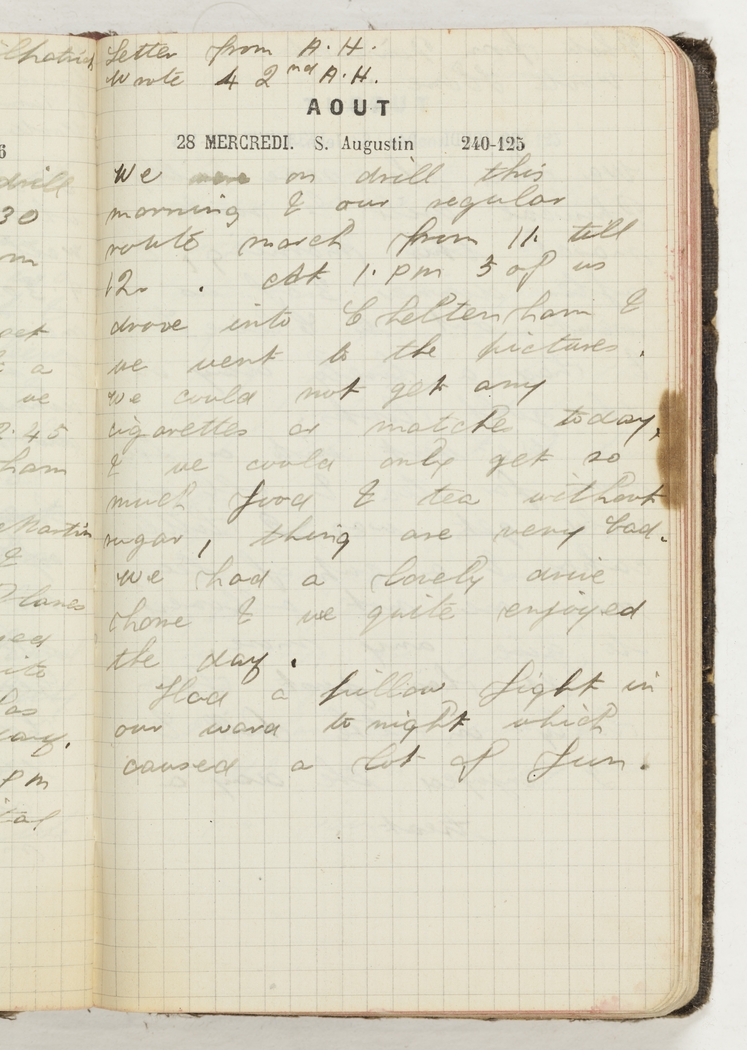 Letter from A.H.
Wrote 4 2nd A.H.
AOUT
28 MERCREDI. S. Augustin 240-125
We were on drill this
morning & our regular
route march from 11. till
12. . At 1. pm 5 of us
drove into Cheltenham &
we went to the pictures.
We could not get any
cigarettes or matches today,
& we could only get so
much food & tea without
sugar, thing are very bad.
We had a lovely drive
home & we quite enjoyed
the day.
Had a pillow fight in
our ward to night which
caused a lot of fun.
drill
30
m
a
we
2.45
ham
Martin
&
Planes
pm